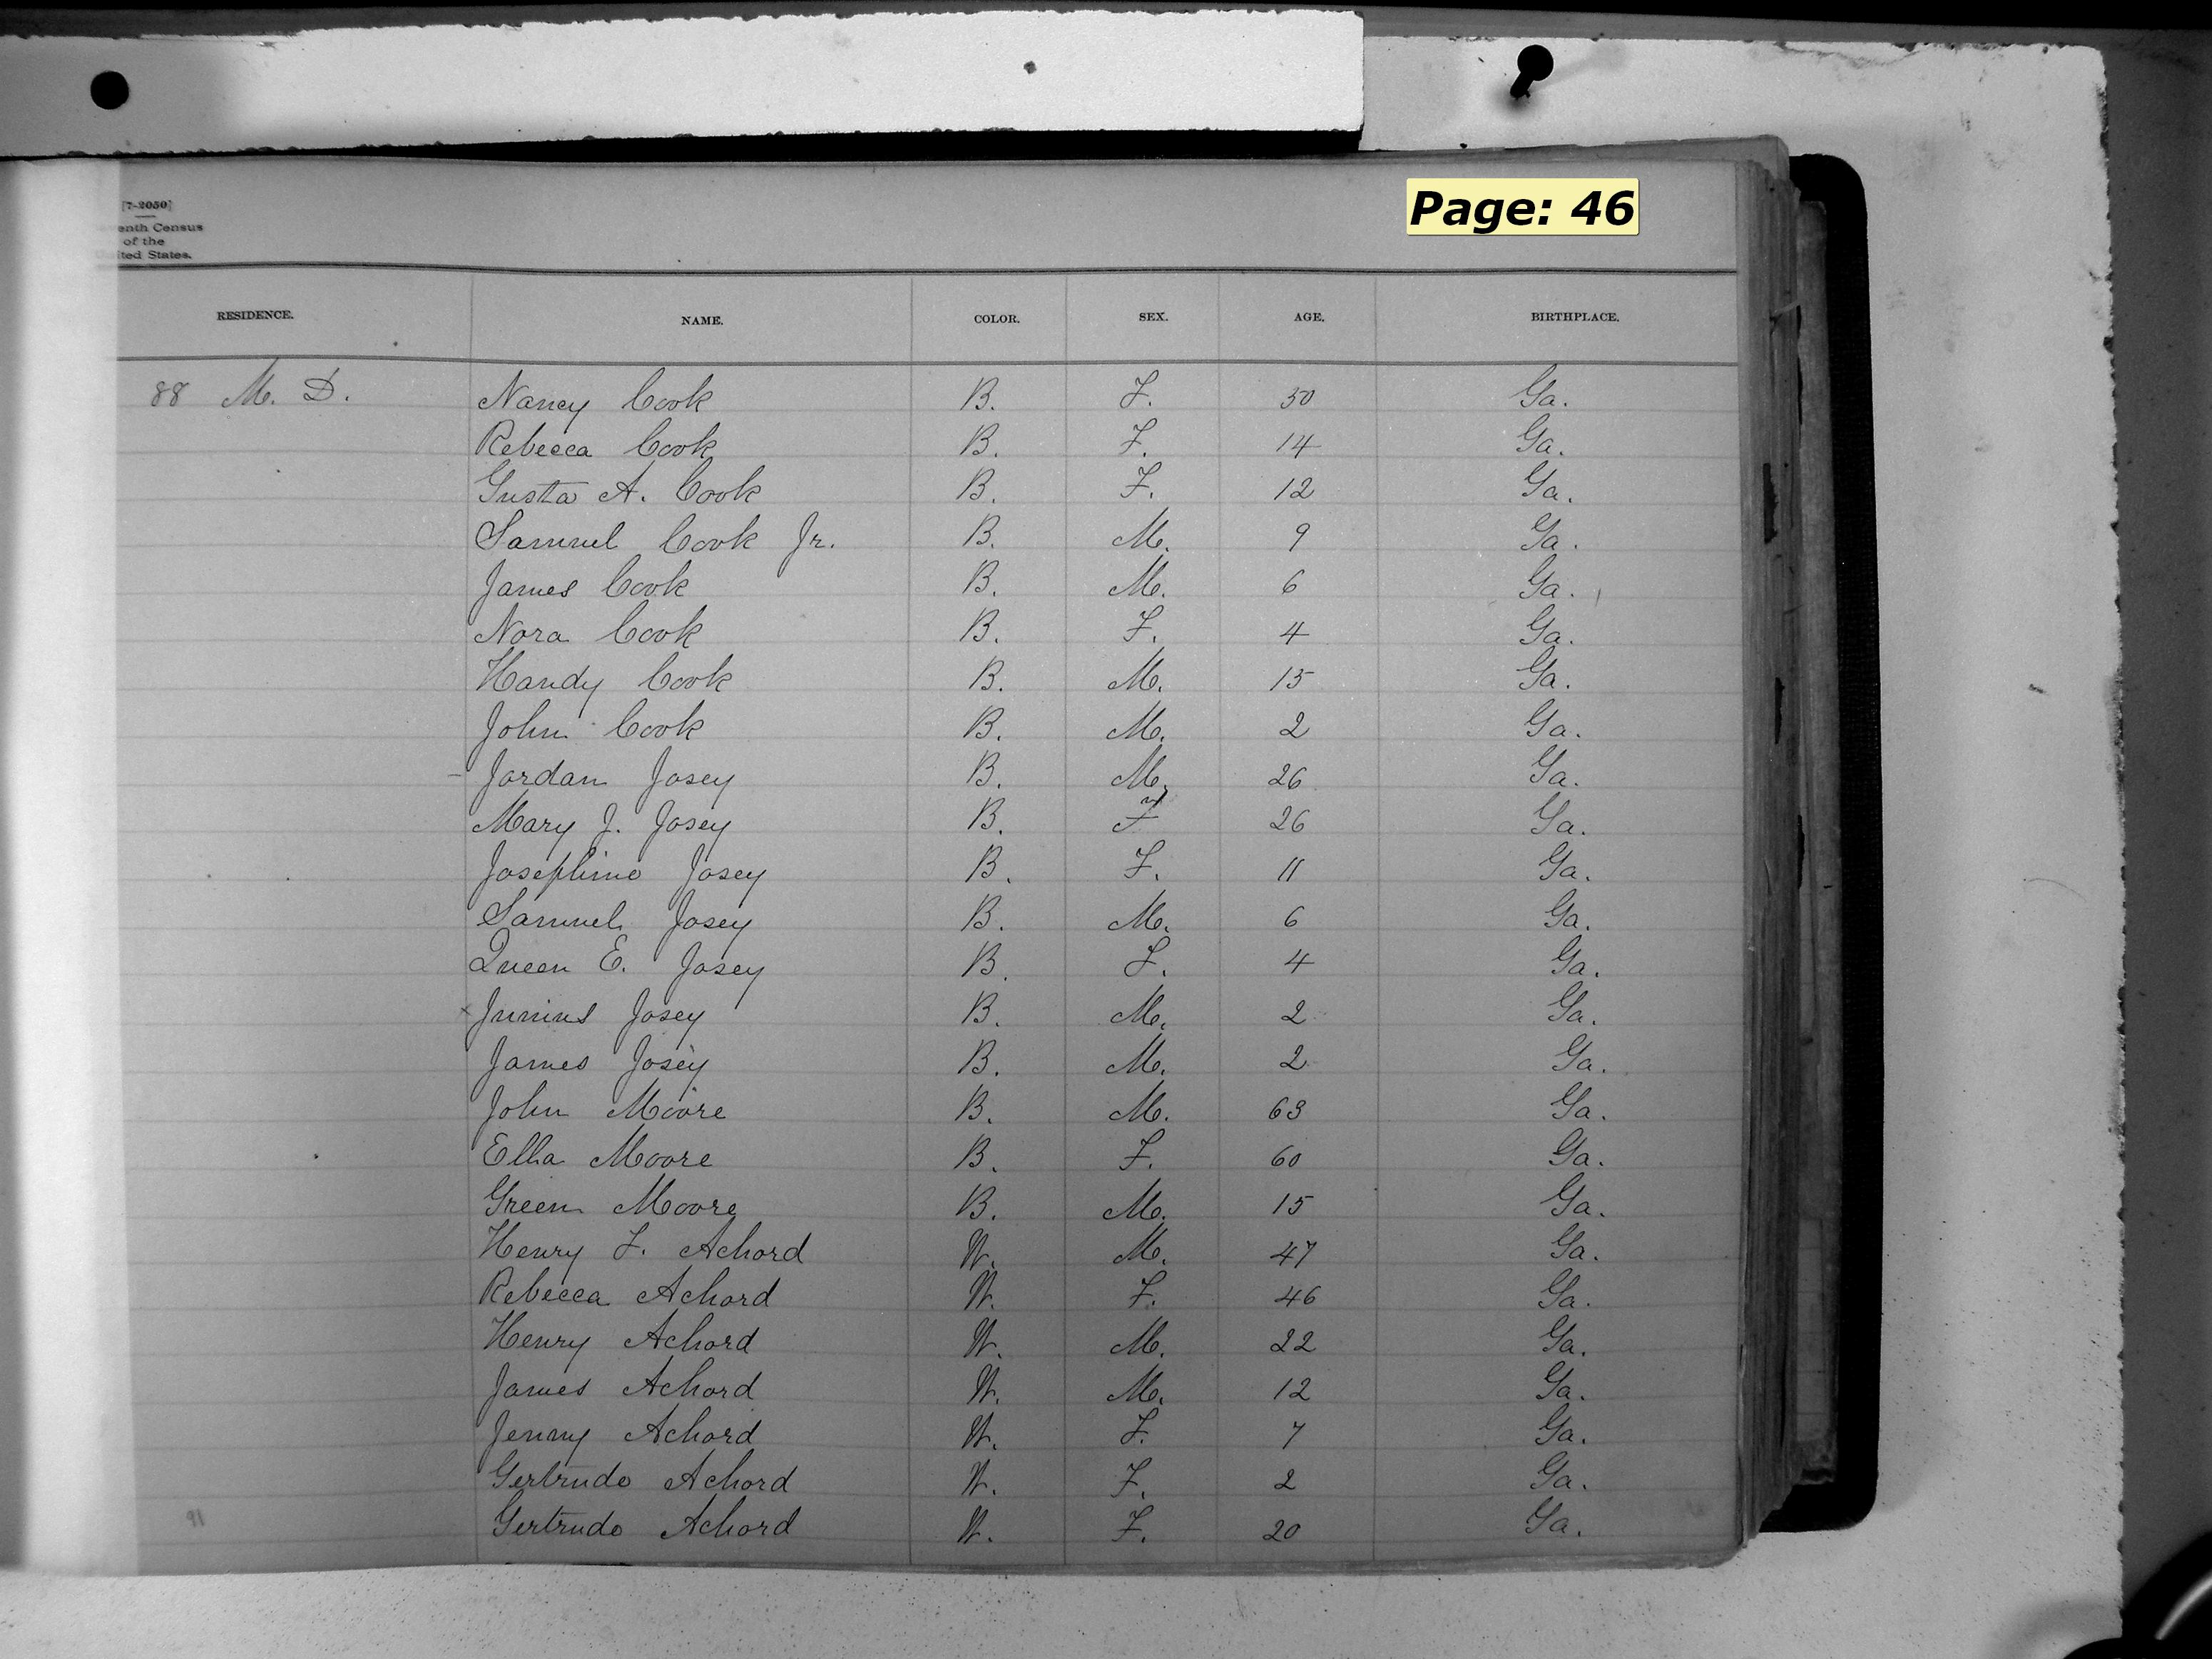 [7-2050]
enth Census
of the
ited States.
Page: 46
RESIDENCE. NAME. COLOR. SEX. AGE. BIRTHPLACE.
88 M. D. Nancy Cook B. F. 30 Ga.
Rebecca Cook B. F. 14 Ga.
Gusta A. Cook B. F. 12 Ga.
Samuel Cook Jr. B. M. 9 Ga.
James Cook B. M. 6 Ga.
Nora Cook B. F. 4 Ga.
Handy Cook B. M. 15 Ga.
John Cook B. M. 2 Ga.
Jordan Josey B. M. 26 Ga.
Mary J. Josey B. F 26 Ga.
Josephine Josey B. F. 11 Ga.
Samuel Josey B. M. 6 Ga.
Queen E. Josey B. F. 4 Ga.
x Junius Josey B. M. 2 Ga.
James Josey B. M. 2 Ga.
John Moore B. M. 63 Ga.
Ella Moore B. F. 60 Ga.
Green Moore B. M. 15 Ga.
Henry F. Achord W. M. 47 Ga.
Rebecca Achord W. F. 46 Ga.
Henry Achord W. M. 22 Ga.
James Achord W. M. 12 Ga.
Jenny Achord W. F. 7 Ga.
Gertrude Achord W. F. 2 Ga.
Gertrude Achord W. F. 20 Ga.